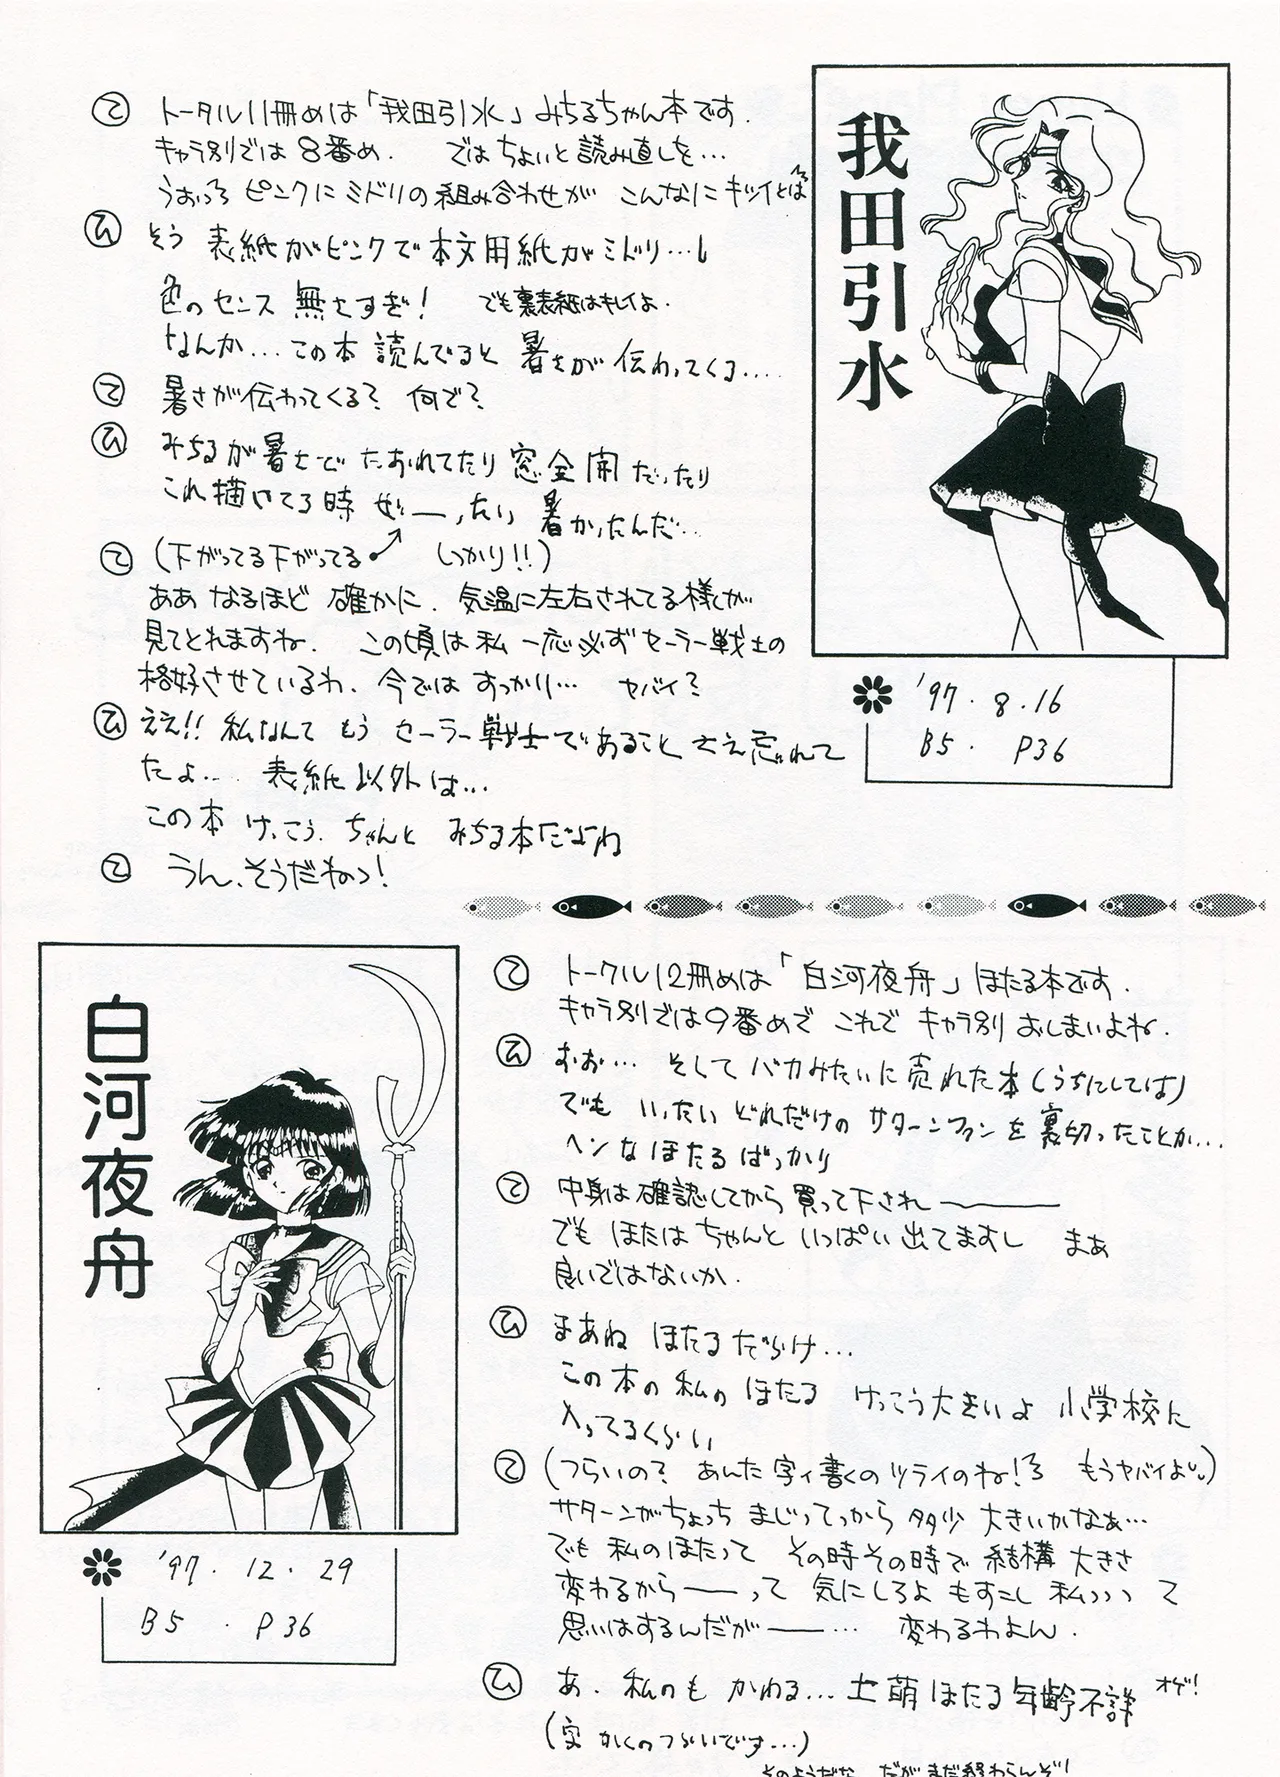 我田引水
て トータル11冊めは「我田引水」みちるちゃん本です.
キャラ別では8番め. ではちょいと読み直しを…
うおっ ピンクにミドリの組み合わせが こんなにキツイとは
ひ そう 表紙がピンクで本文用紙がミドリ…
色のセンス 無さすぎ! でも裏表紙はキレイよ.
なんか…この本 読んでると 暑さが 伝わってくる....
て 暑さが伝わってくる? 何で?
ひ みちるが暑さで たおれてたり 窓全開だったり
これ描いてる時 ぜーったい 暑かったんだ…
て (下がってる下がってる しっかり!!)
ああ なるほど 確かに. 気温に左右されてる様が
見てとれますね. この頃は私 一応必ずセーラー戦士の
格好させているわ. 今では すっかり… ヤバイ?
ひ ええ!! 私なんて もう セーラー戦士であること さえ忘れて
たよ… 表紙以外は…
この本 けっこう ちゃんと みちる本だよね
て うん、そうだねっ!
'97.8.16
B5. P36
白河夜舟
て トータル12冊めは「白河夜舟」ほたる本です.
キャラ別では9番めで これで キャラ別 おしまいよね.
ひ むお… そしてバカみたいに売れた本(うちにしては)
でも いったい どれだけの サターンファンを裏切ったことか…
ヘンなほたるばっかり
て 中身は確認してから買って下され――
でも ほたはちゃんと いっぱい出てますし まあ
良いではないか.
ひ まあね ほたるだらけ…
この本の私のほたる けっこう大きいよ 小学校に
入ってるくらい
て (つらいの? あんた字ィ書くのツライのね! もうヤバイよ)
サターンがちょっち まじってっから 多少 大きいかなぁ…
でも 私のほたって その時その時で 結構 大きさ
変わるから――って 気にしろよ もすこし 私っっっ て
思いはするんだが――… 変わるわよん.
ひ あ. 私のも かわる… 土萌ほたる年齢不詳 オゲ!
(字 かくのつらいです…)
そのようだな だがまだ終わらんぞ!
'97.12.29
B5. P36